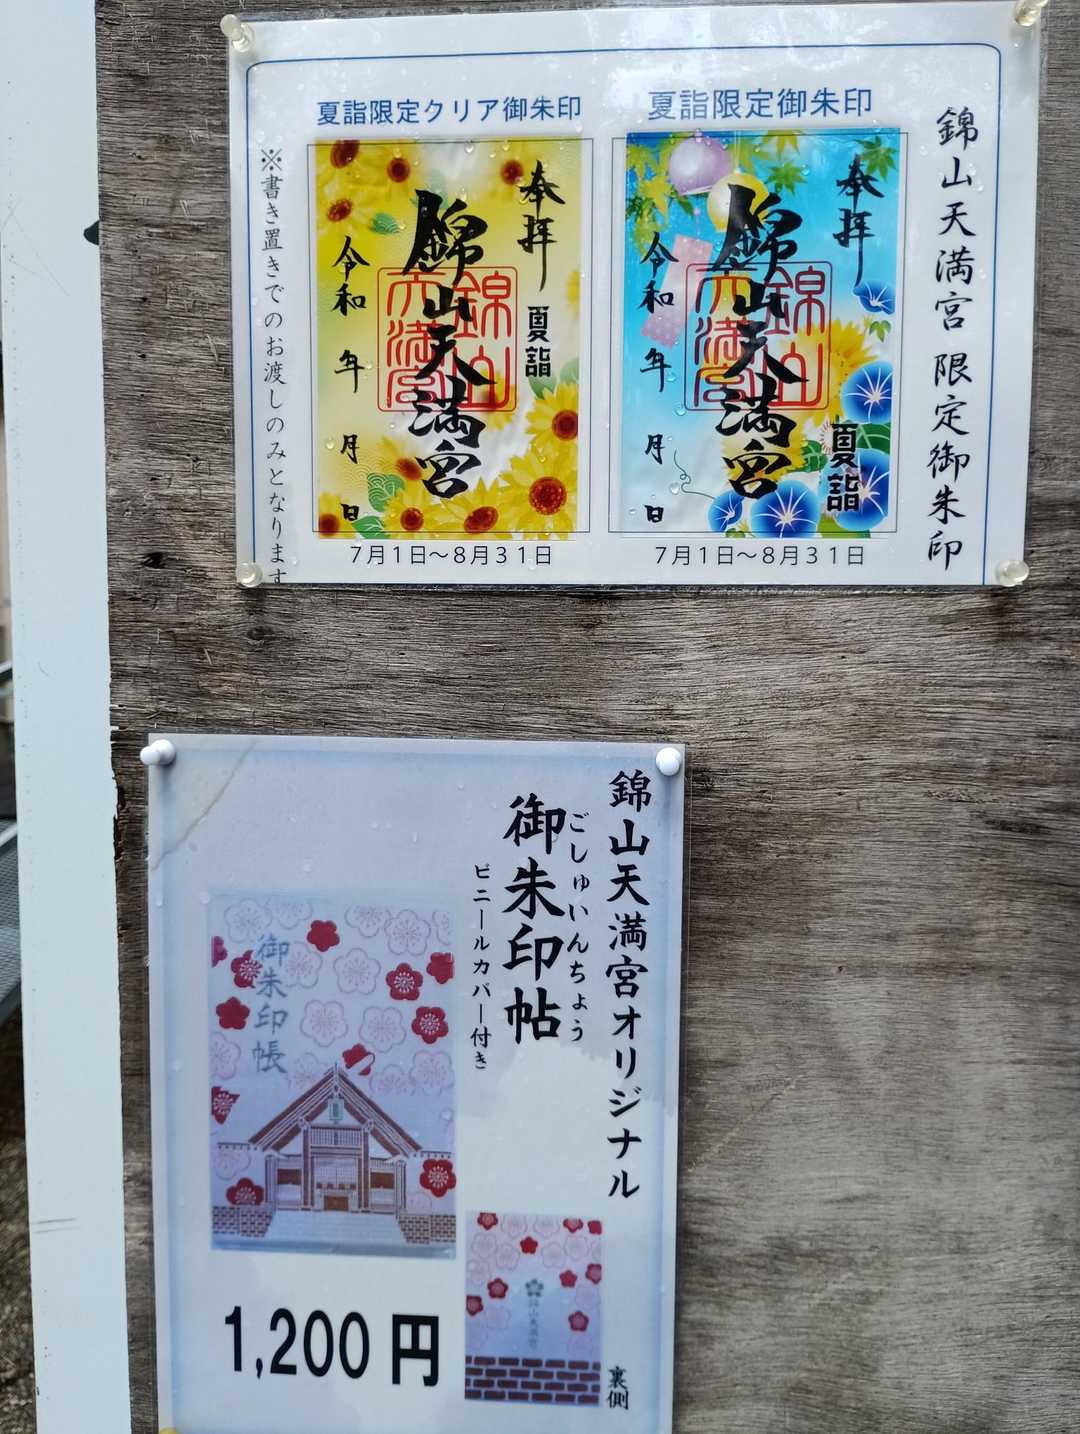 錦山天満宮 限定御朱印
夏詣限定御朱印
奉拝
夏詣
錦山天満宮
錦山
天満宮
令和 年 月 日
7月1日～8月31日
夏詣限定クリア御朱印
奉拝
夏詣
錦山天満宮
錦山
天満宮
令和 年 月 日
7月1日～8月31日
※書き置きでのお渡しのみとなります
錦山天満宮オリジナル
ごしゅいんちょう
御朱印帖
ビニールカバー付き
御朱印帳
錦山天満宮
裏側
1,200円